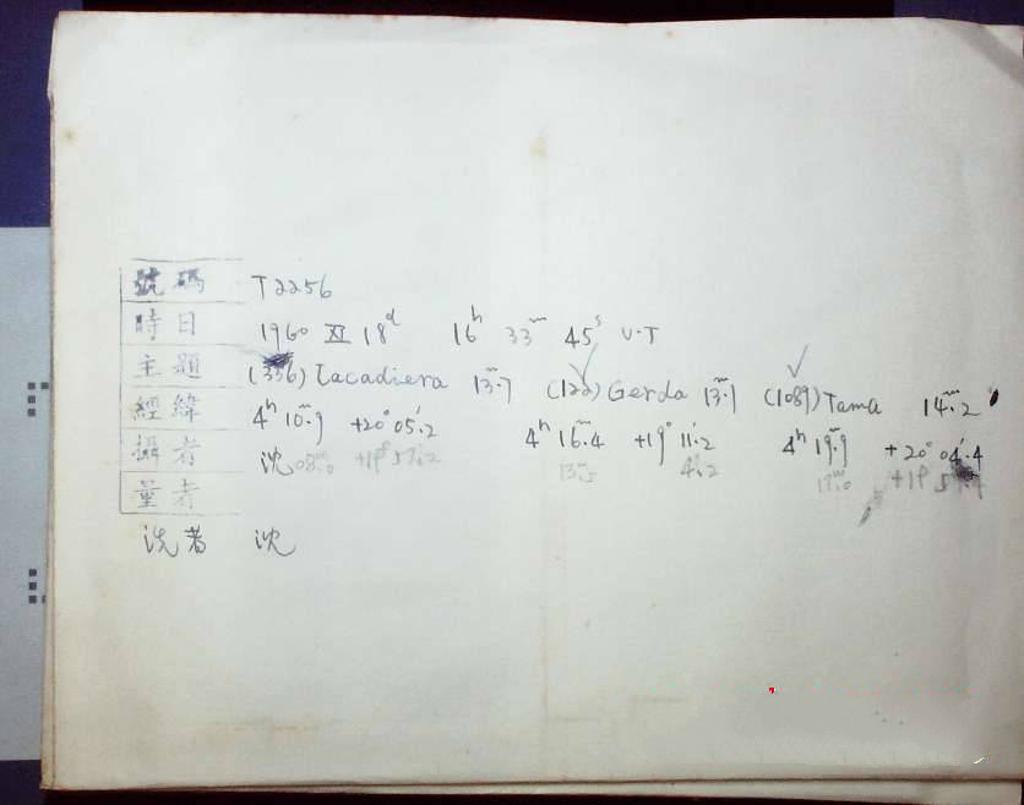 號碼 T2256
時日 1960 XI 18d 16h 33m 45s U.T
主題 (336) Lacadiera 13m.7 (122) Gerda 13m.1 (1089) Tama 14m.2
經緯 4h 10m.9 +20° 05'.2 4h 16m.4 +19° 11'.2 4h 19m.9 +20° 04'.4
攝者 沈 08m.0 +19° 57'.2 13m.5
量者
洗者 沈